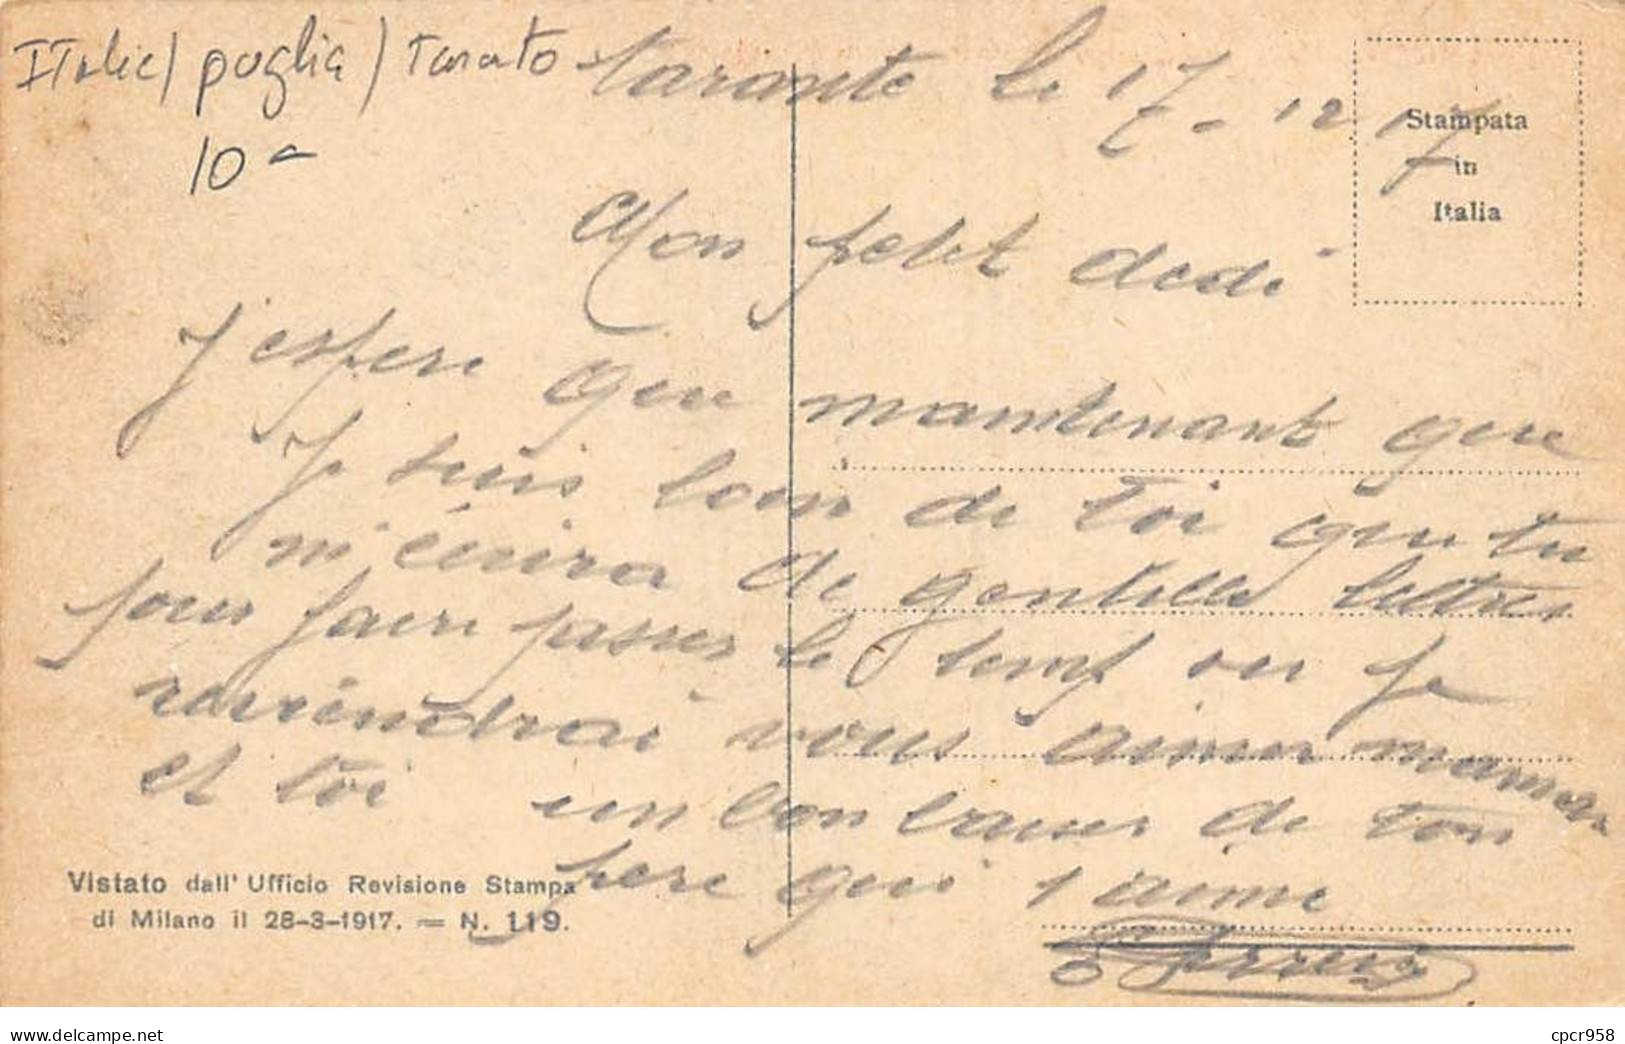 ITalie / puglia / Tarato
10
tarante le 17-12 17
Stampata
in
Italia
Mon petit dedé
J'espere que maintenant que
je suis loin de toi que tu
m'écrira de gentille lettres
pour faire passer le temp ou je
reviendrai vous aimer maman
et toi un bon baiser de ton
pere qui t'aime
Vistato dall' Ufficio Revisione Stampa
di Milano il 28-3-1917. = N. 119.
cpcr958